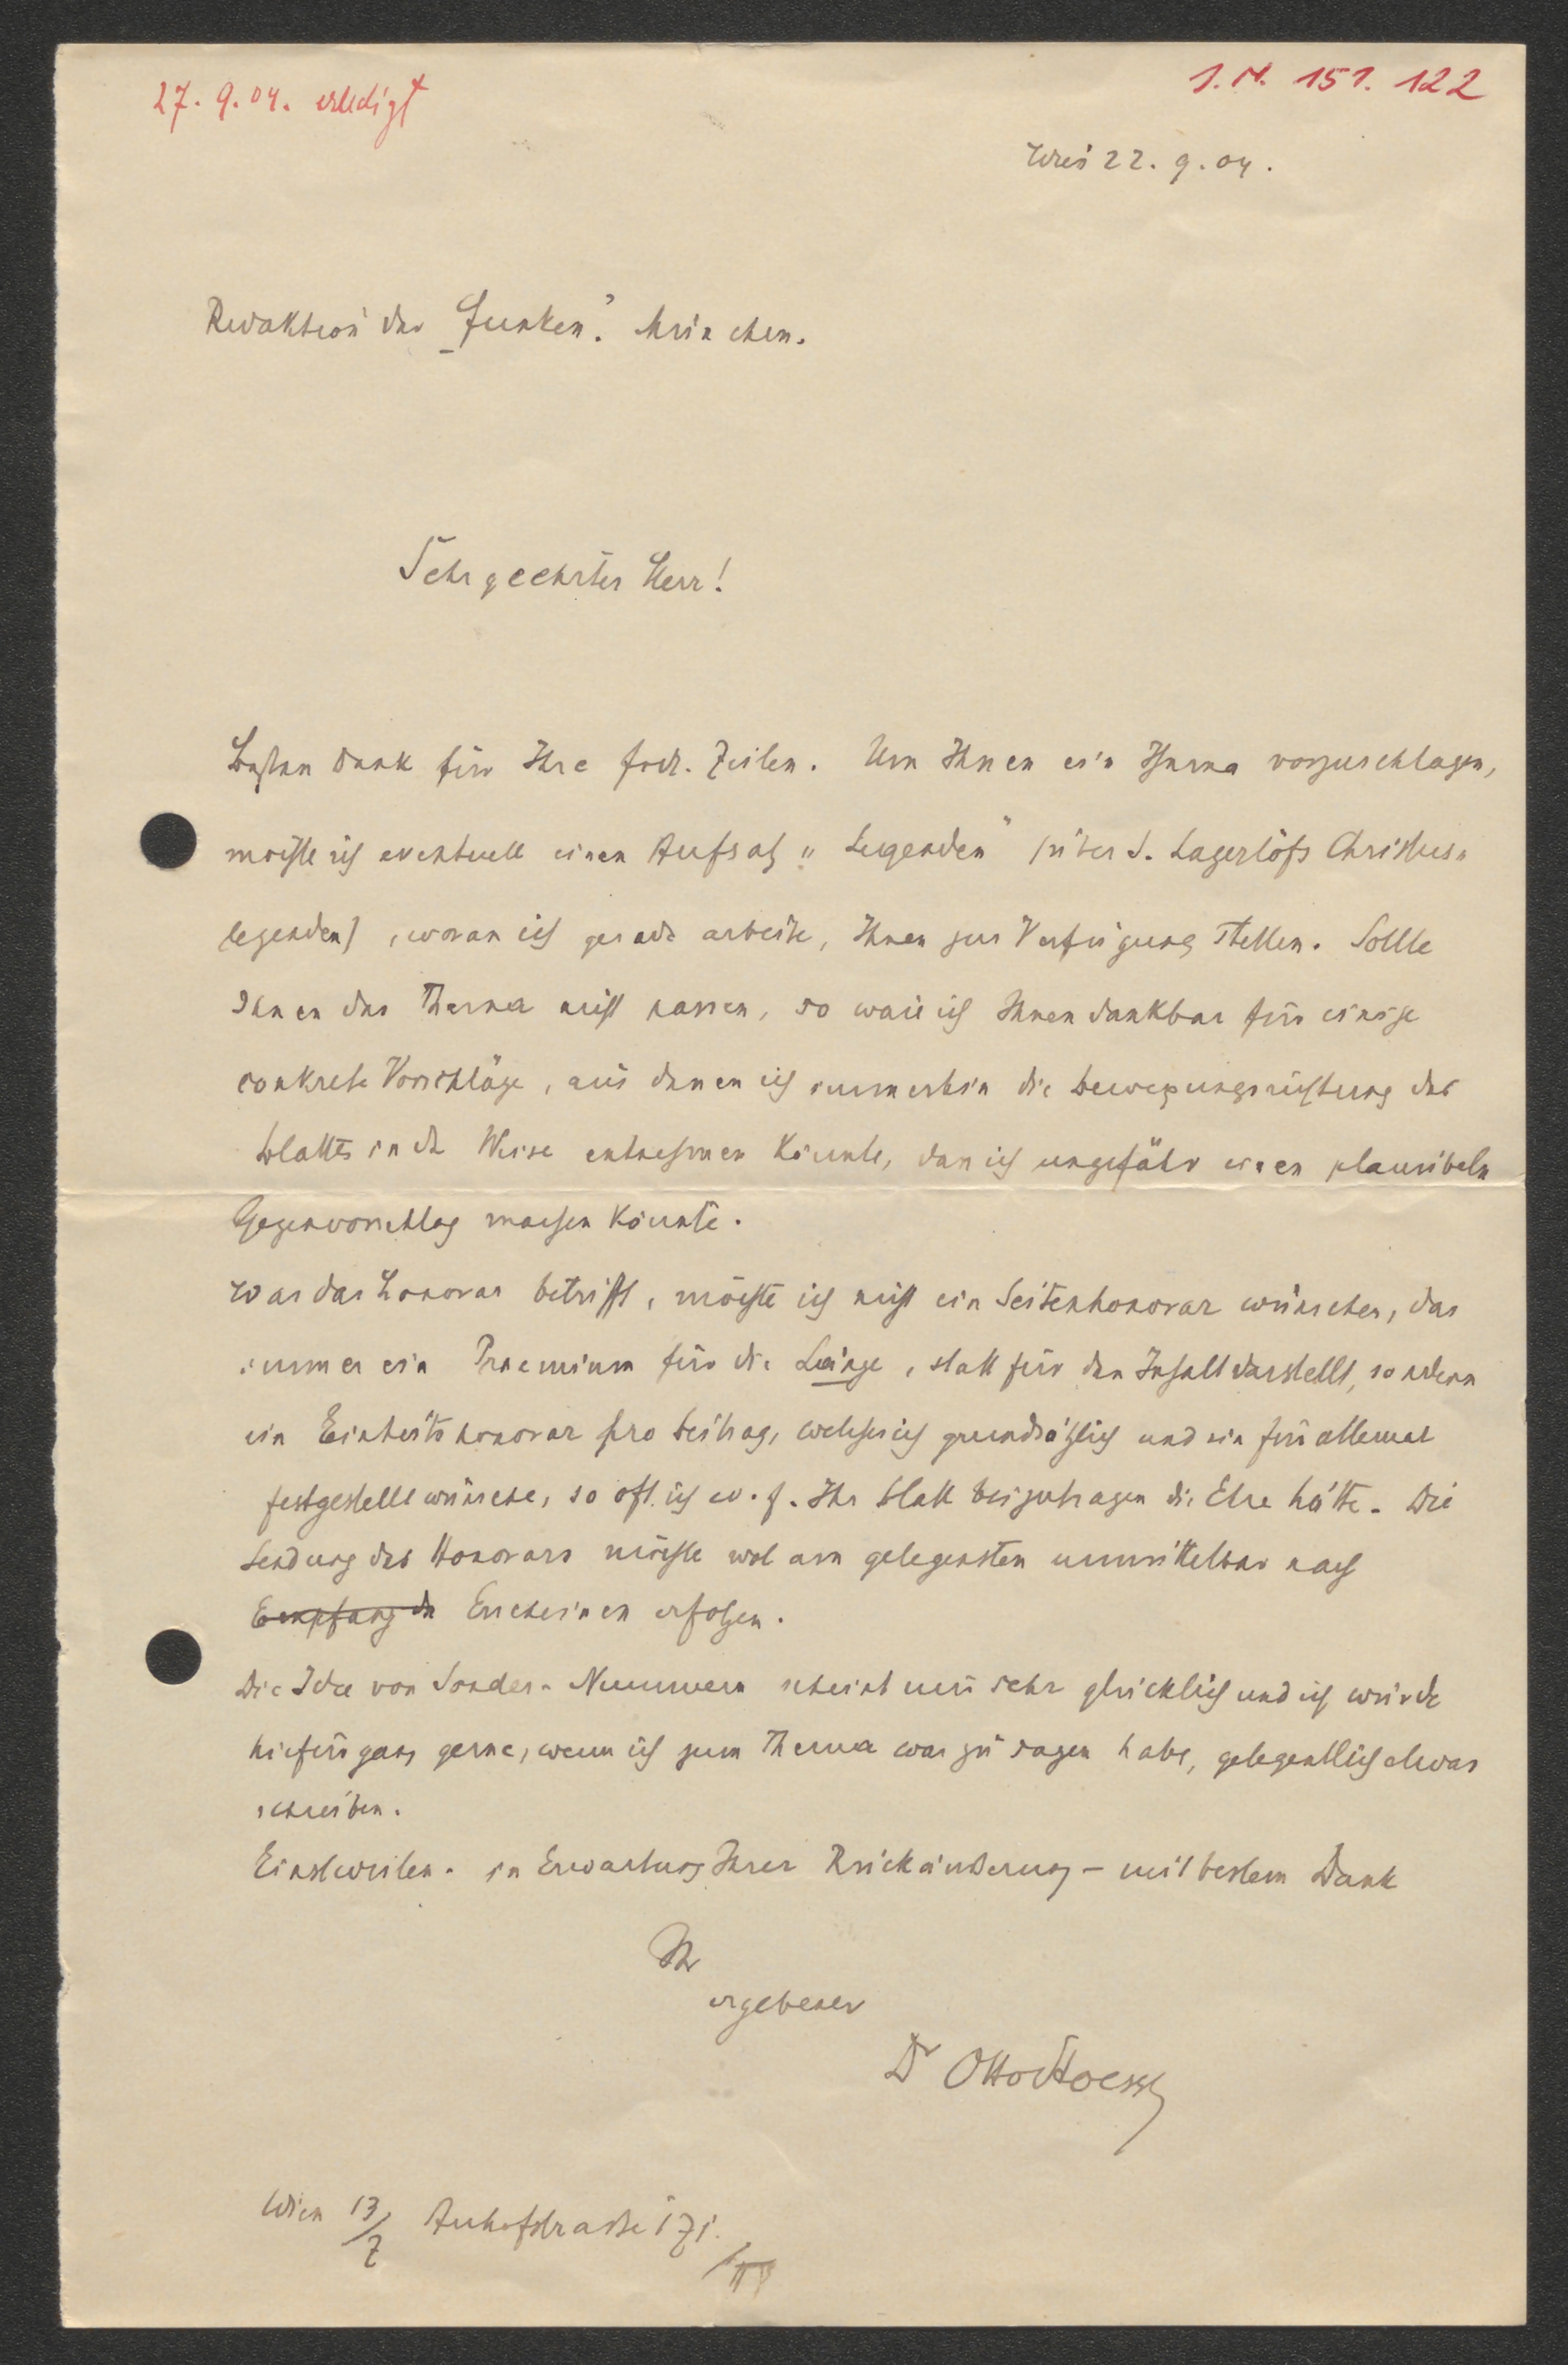 27. 9. 04. erledigt
I. N. 151. 122
Wien 22. 9. 04.
Redaktion der „Funken". München.
Sehr geehrter Herr!
Besten Dank für Ihre frdl. Zeilen. Um Ihnen ein Thema vorzuschlagen,
möchte ich eventuell einen Aufsatz „Legenden" (über S. Lagerlöfs Christus-
legenden), woran ich gerade arbeite, Ihnen zur Verfügung stellen. Sollte
Ihnen das Thema nicht passen, so wäre ich Ihnen dankbar für einige
conkrete Vorschläge, aus denen ich immerhin die Bewegungsrichtung des
Blattes in der Weise entnehmen könnte, dass ich ungefähr einen plausibeln
Gegenvorschlag machen könnte.
Was das Honorar betrifft, möchte ich nicht ein Seitenhonorar wünschen, das
immer ein Praemium für die Länge, statt für den Inhalt darstellt, sondern
ein Einheitshonorar pro Beitrag, welches ich grundsätzlich und ein für allemal
festgestellt wünsche, so oft ich ev. f. Ihr Blatt beizutragen die Ehre hätte. Die
Sendung des Honorars möchte wol am gelegensten unmittelbar nach
Empfang der Erscheinen erfolgen.
Die Idee von Sonder-Nummern scheint mir sehr glücklich und ich würde
hiefür ganz gerne, wenn ich zum Thema was zu sagen habe, gelegentlich etwas
schreiben.
Einstweilen - in Erwartung Ihrer Rückäußerung - mit bestem Dank
Ihr
ergebener
Dr Otto Stoessl
Wien 13/7 Auhofstrasse 171. /II